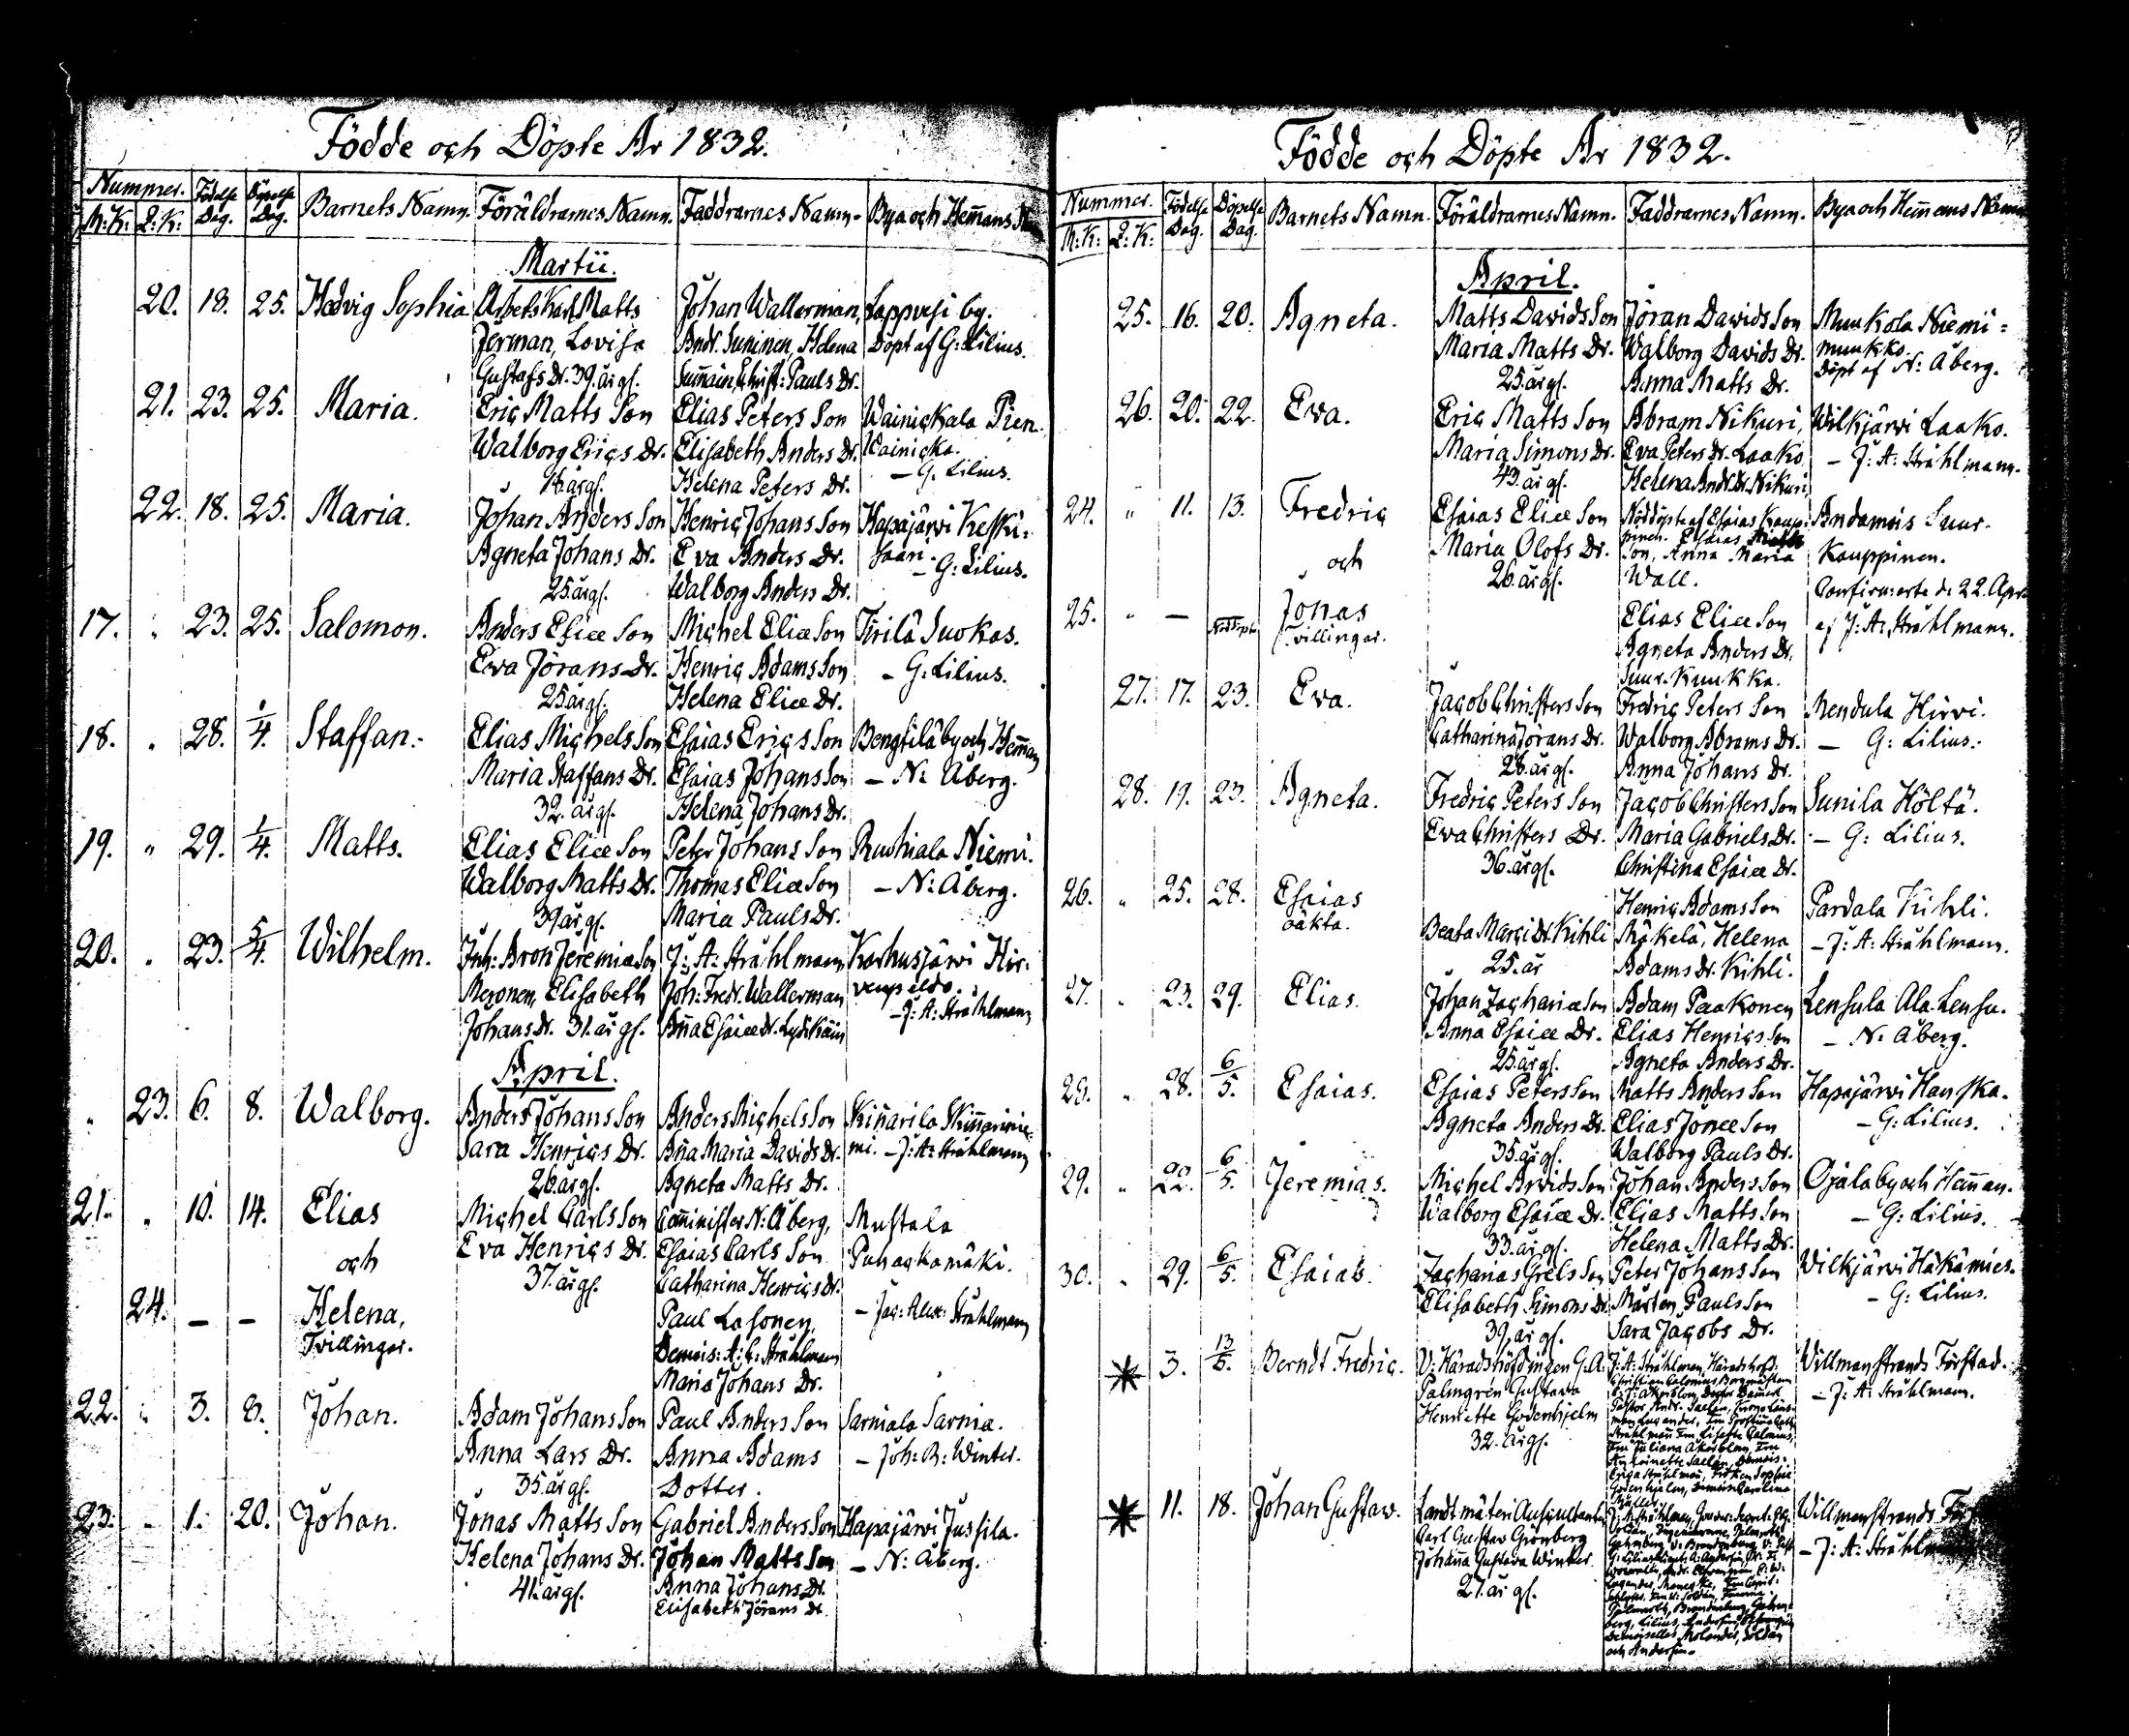 Födde och Döpte År 1832.
Nummer. Födelse Dag. Döpelse Dag. Barnets Namn. Föräldrarnes Namn. Faddrarnes Namn. Bya och Hem̄ans
M:K: Q:K:
Martii.
20. 18. 25. Hedvig Sophia Arbets Karl Matts Johan Wallerman, Lappvesi by.
Jerman, Lovisa Andr. Suninen, Helena Döpt af G: Lilius.
Gustafs Dr. 39. år gl. Pauls Dr.
21. 23. 25. Maria. Eric Matts Son Elias Peters Son Wainickala Pien
Walborg Erics Dr. Elisabeth Anders Dr. Wainicka.
år gl. Helena Peters Dr. – G. Lilius.
22. 18. 25. Maria. Johan Anders Son Henric Johans Son Hapajärvi Keski-
Agneta Johans Dr. Eva Anders Dr. saari. – G: Lilius.
25. år gl. Walborg Anders Dr.
17. " 23. 25. Salomon. Anders Eliæ Son Michel Eliæ Son Tirilä Suokas.
Eva Jörans Dr. Henric Adams Son – G: Lilius.
25. år gl. Helena Eliæ Dr.
18. " 28. 1/4. Staffan. Elias Michels Son Esaias Erics Son Bengtilä by och Hem̄an
Maria Staffans Dr. Esaias Johans Son – N: Åberg.
32. år gl. Helena Johans Dr.
19. " 29. 1/4. Matts. Elias Eliæ Son Peter Johans Son Ruohiala Niemi.
Walborg Matts Dr. Thomas Eliæ Son – N: Åberg.
39 år gl. Maria Pauls Dr.
20. " 23. 5/4. Wilhelm. Inh: Aron Jeremiæ Son J: A: Stråhlmann Karhusjärvi Hir-
Meronen, Elisabeth Joh: Fredr. Wallerman
Johans Dr. 31. år gl. An̄a Esaiæ Dr. – J: A: Stråhlmann
April.
" 23. 6. 8. Walborg. Anders Johans Son Anders Michels Son Skin̄arila Skin̄arinie-
Sara Henrics Dr. An̄a Maria Davids Dr. mi. – J: A: Stråhlmann
26. år gl. Agneta Matts Dr.
21. " 10. 14. Elias Michel Carls Son Com̄inister N: Åberg, Mustola
och Eva Henrics Dr. Esaias Carls Son Puhackamäki.
37. år gl. Catharina Henrics Dr.
24. – – Helena, Paul Lasonen, – Jac: Alex: Stråhlmann
Tvillingar. Demois: A: C: Stråhlmann
Maria Johans Dr.
22. " 3. 8. Johan. Adam Johans Son Paul Anders Son Sarviala Sarvia.
Anna Lars Dr. Anna Adams – Joh: R: Winter.
35. år gl. Dotter.
23. " 1. 20. Johan. Jonas Matts Son Gabriel Anders Son Hapajärvi Jussila.
Helena Johans Dr. Johan Matts Son – N: Åberg.
41. år gl. Anna Johans Dr.
Elisabeth Jörans Dr.
Födde och Döpte År 1832.
Nummer. Födelse Dag. Döpelse Dag. Barnets Namn. Föräldrarnes Namn. Faddrarnes Namn. Bya och Hem̄ans Namn
M:K: Q:K:
April.
25. 16. 20. Agneta. Matts Davids Son Jöran Davids Son Munkola Niemi-
Maria Matts Dr. Walborg Davids Dr. munkko.
25. år gl. Anna Matts Dr. Döpt af N: Åberg.
26. 20. 22. Eva. Eric Matts Son Abram Nikuri, Wilkjärvi Laako.
Maria Simons Dr. Eva Peters Dr. Laako – J: A: Stråhlmann.
43. år gl. Helena And. Dr. Nikuri
24. " 11. 13. Fredric Esaias Eliæ Son Nöddöpte af Esaias Kaup- Andamois Suur-
och Maria Olofs Dr. pinen. Esaias Matts Kauppinen.
26. år gl. Son, Anna Maria Confirmerte d: 22. Apr.
Wall.
25. " – Nöddöpte Jonas Elias Eliæ Son af J: A: Stråhlmann.
Tvillingar. Agneta Anders Dr.
Suur-Kuukka.
27. 17. 23. Eva. Jacob Christers Son Fredric Peters Son Nendula Hirvi.
Catharina Jörans Dr. Walborg Abrams Dr. – G: Lilius.
26. år gl. Anna Johans Dr.
28. 19. 23. Agneta. Fredric Peters Son Jacob Christers Son Sunila Höltä.
Eva Christers Dr. Maria Gabriels Dr. – G: Lilius.
36. år gl. Christina Esaiæ Dr.
26. " 25. 28. Esaias Henric Adams Son Pardala Kihli.
oäkta. Beata Marci Dr. Kihli Mäkelä, Helena – J: A: Stråhlmann.
25. år Adams Dr. Kihli.
27. " 23. 29. Elias. Johan Zachariæ Son Adam Paakonen Lensula Ala-Lensu.
Anna Esaiæ Dr. Elias Henrics Son – N: Åberg.
25. år gl. Agneta Anders Dr.
28. " 28. 6/5. Esaias. Esaias Peters Son Matts Anders Son Hapajärvi Hanska.
Agneta Anders Dr. Elias Jonæ Son – G: Lilius.
35. år gl. Walborg Pauls Dr.
29. " 22. 6/5. Jeremias. Michel Arvids Son Johan Anders Son Ojala by och Hem̄an.
Walborg Esaiæ Dr. Elias Matts Son – G: Lilius.
33. år gl. Helena Matts Dr.
30. " 29. 6/5. Esaias. Zacharias Grels Son Peter Johans Son Wilkjärvi Häkämies.
Elisabeth Simons Dr. Mårten Pauls Son – G: Lilius.
39. år gl. Sara Jacobs Dr.
* 3. 13/5. Berndt Fredric. V: Häradshöfdingen G. A. J: A: Stråhlman, Häradshöfd: Willmanstrands Förstad.
Palmgrén Gustava – J: A: Stråhlmann.
Henriette Godenhjelm
32. år gl.
* 11. 18. Johan Gustaw. Landtmäteri Auscultanten Willmanstrands
Carl Gustav Grönberg – J: A: Stråhlmann
Johan̄a Gustava Winter
27. år gl.
Demoiselles Molander, Soldan
och Andersin.